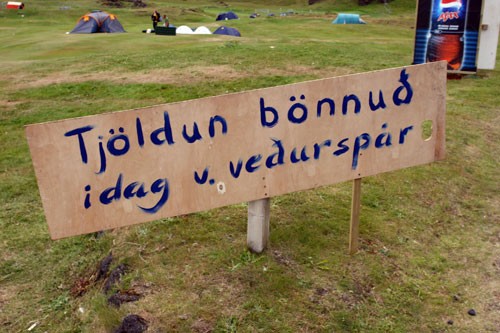 Tjöldun bönnuð
í dag v. veðurspár
PEPSI